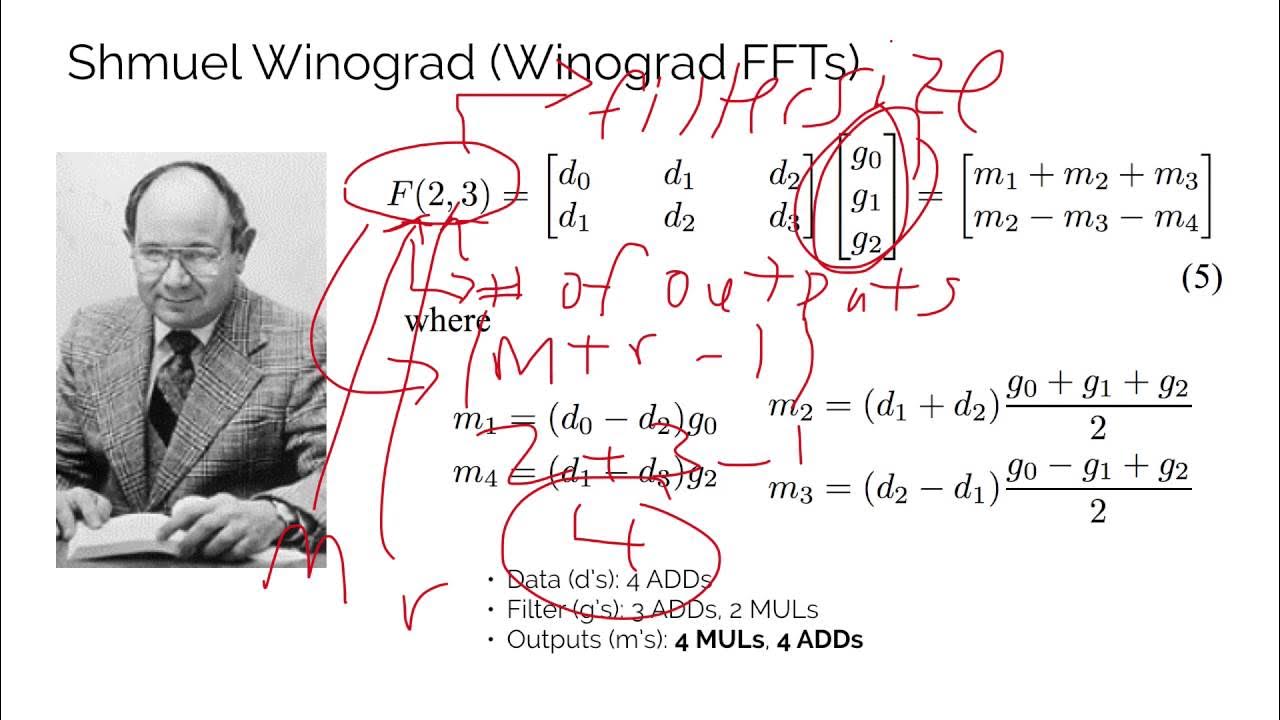 Shmuel Winograd (Winograd FFTs)
filter size
F(2, 3) = [d0 d1 d2; d1 d2 d3] [g0; g1; g2] = [m1 + m2 + m3; m2 − m3 − m4]
(5)
# of outputs
where
(m + r - 1)
m1 = (d0 − d2)g0
m2 = (d1 + d2) (g0 + g1 + g2)/2
2 + 3 - 1
m4 = (d1 − d3)g2
m3 = (d2 − d1) (g0 − g1 + g2)/2
4
m
r
• Data (d's): 4 ADDs
• Filter (g's): 3 ADDs, 2 MULs
• Outputs (m's): 4 MULs, 4 ADDs